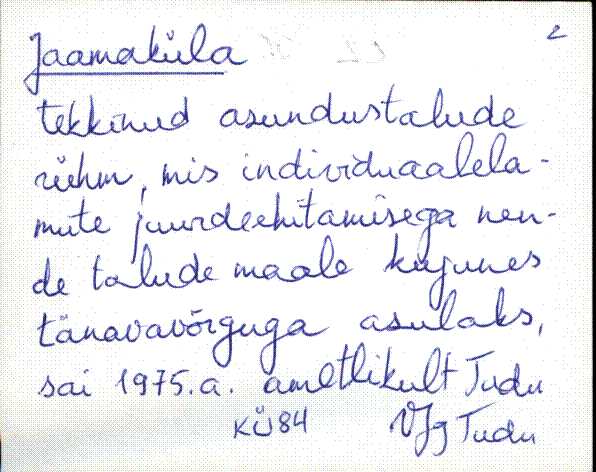 2
Jaamaküla
tekkinud asundustalude
rühm, mis individuaalela-
mute juurdeehitamisega nen-
de talude maale kujunes
tänavavõrguga asulaks,
sai 1975.a. ametlikult Tudu
KÜ84 VJg Tudu